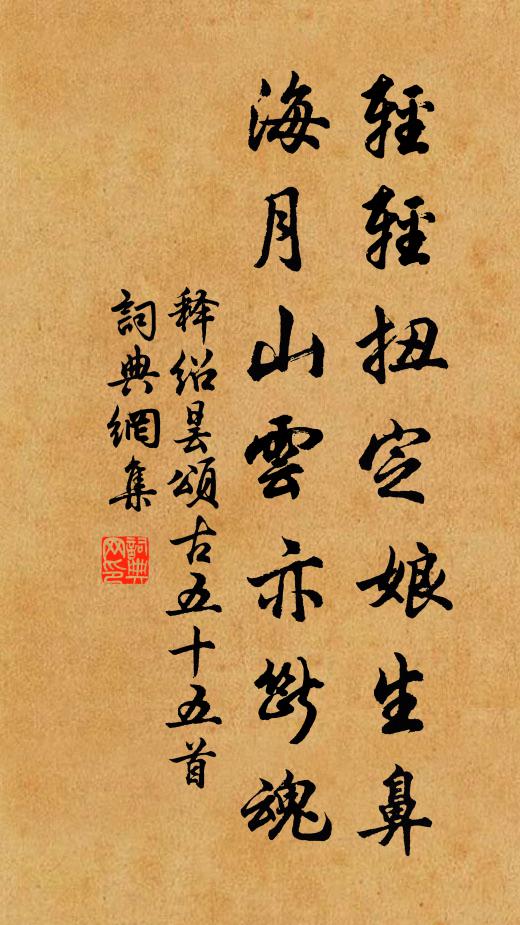 輕輕扭定娘生鼻
海月山雲亦斷魂
释绍昙頌古五十五首
詞典網集
詞典網印